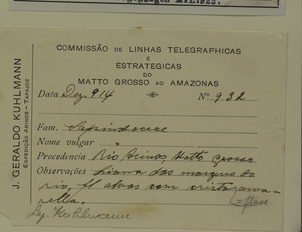 COMMISSÃO DE LINHAS TELEGRAPHICAS E
ESTRATEGICAS
DO
MATTO GROSSO AO AMAZONAS
Data Dez. 914 Nº 932
Fam. Sapindaceae
Nome vulgar "
Procedencia Rio Arinos, Matto Grosso
Observações Liana das margens do
rio, fl alvas com crista ama-
rella.
= flava
Leg. Kuhlmann
J. GERALDO KUHLMANN
EXPEDIÇÃO ARINOS - TAPAJOZ